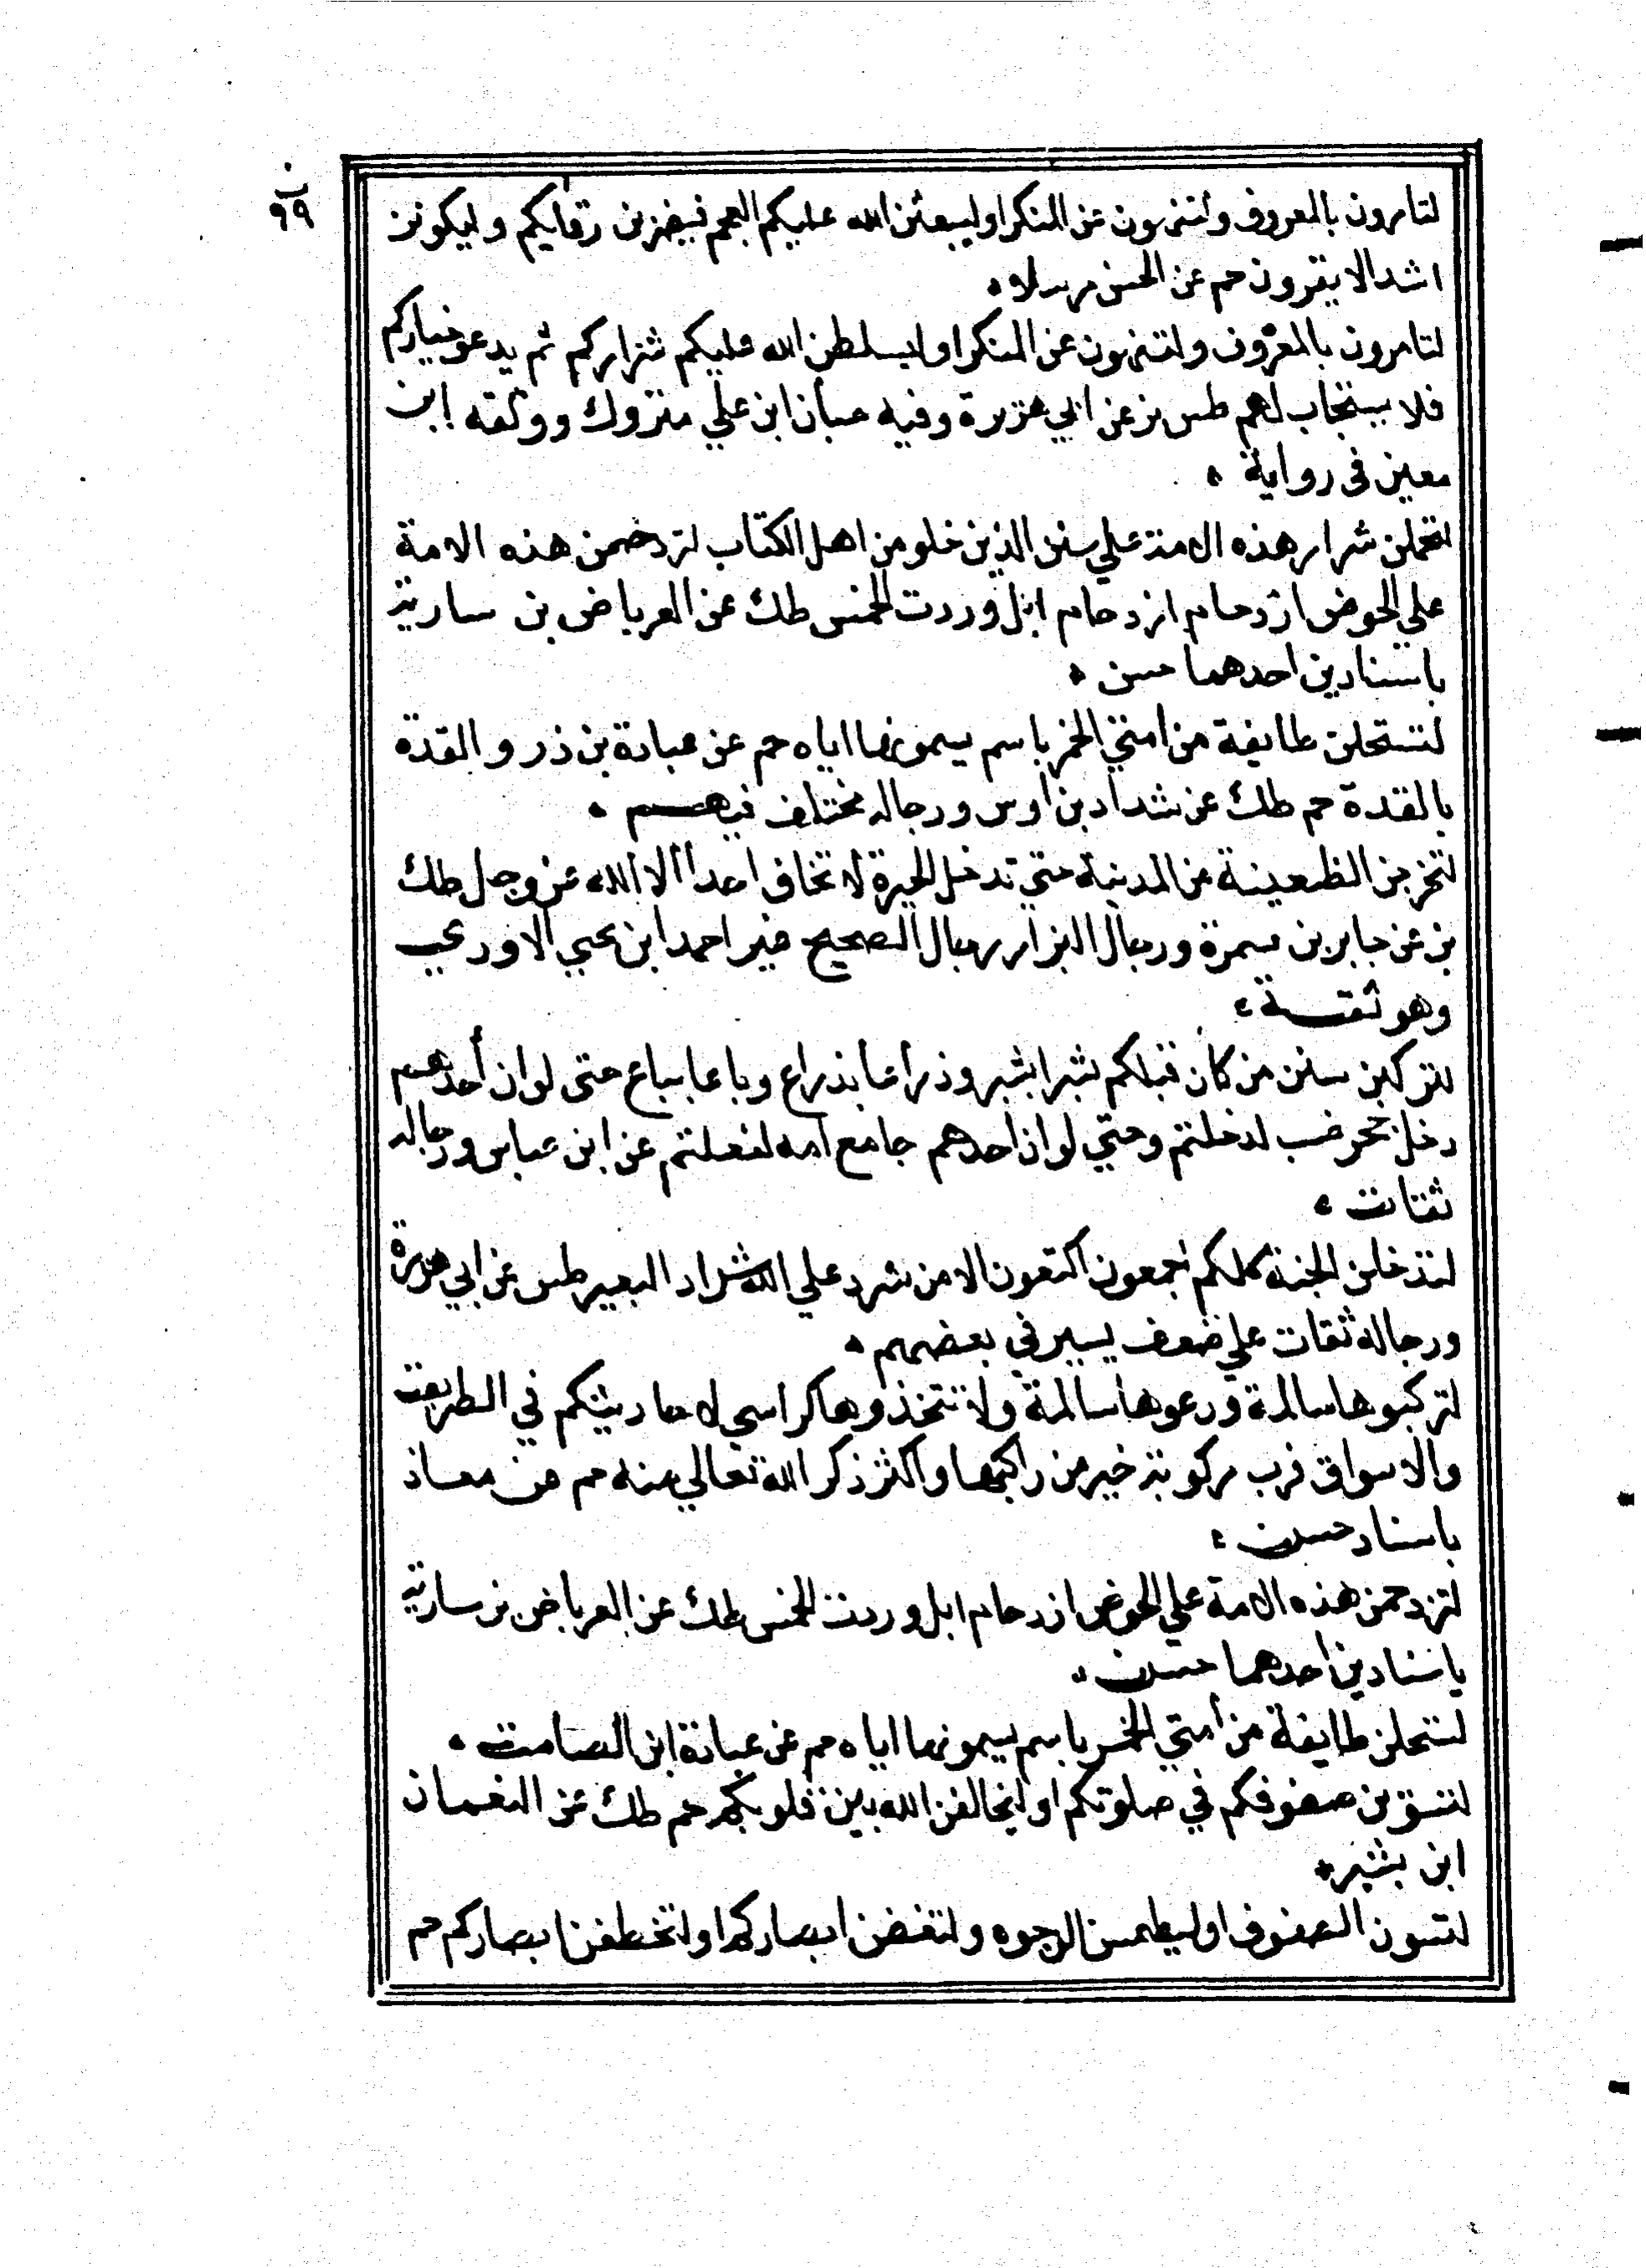 ٩٩
لتامرون بالمعروف ولتنهون عن المنكر او ليبعثن الله عليكم العجم فيضربن رقابكم وليكونن
اشد الا يفرون حم عن الحسن مرسلا
لتامرون بالمعروف ولتنهون عن المنكر او ليسلطن الله عليكم شراركم ثم يدعو خياركم
فلا يستجاب لهم طس بز عن ابي هريرة وفيه حبان ابن علي متروك ووثقه ابن
معين فى رواية
لتحملن شرار هذه الامة علي سنن الذين خلو من اهل الكتاب لتزدحمن هذه الامة
علي الحوض ازدحام ازدحام ابل وردت لخمس طك عن العرباض بن سارية
باسنادين احدهما حسن
لتستحلن طايفة من امتي الخمر باسم يسمونها اياه حم عن عبادة بن ذر والقدة
بالقدة حم طك عن شداد بن اوس ورجاله مختلف فيهم
لتخرجن الظعينة من المدينة حتي تدخل الحيرة لا تخاف احدا الا الله عز وجل طك
بز عن جابر بن سمرة ورجال البزار رجال الصحيح غير احمد ابن يحيي الاودي
وهو ثقة
لتركبن سنن من كان قبلكم شبرا بشبر وذراعا بذراع وباعا بباع حتى لو ان أحدهم
دخل جحر ضب لدخلتم وحتي لو ان احدهم جامع امه لفعلتم عن ابن عباس ورجاله
ثقات
لتدخلن الجنة كلكم اجمعون اكتعون الا من شرد علي الله شراد البعير طس عن ابي هريرة
ورجاله ثقات علي ضعف يسير في بعضهم
لتركبوها سالمة ودعوها سالمة ولا تتخذوها كراسي لاحاديثكم في الطريق
والاسواق فرب مركوبة خير من راكبها واكثر ذكر الله تعالي منه حم عن معاذ
باسناد حسن
لتزدحمن هذه الامة علي الحوض ازدحام ابل وردت لخمس طك عن العرباض بن سارية
باسنادين احدهما حسن
لتستحلن طايفة من أمتي الخمر باسم يسمونها اياه حم عن عبادة ابن الصامت
لتسون صفوفكم في صلوتكم او ليخالفن الله بين قلوبكم حم طك عن النعمان
ابن بشير
لتسون الصفوف او ليطمسن الوجوه ولتغضن ابصاركم او لتخطفن ابصاركم حم